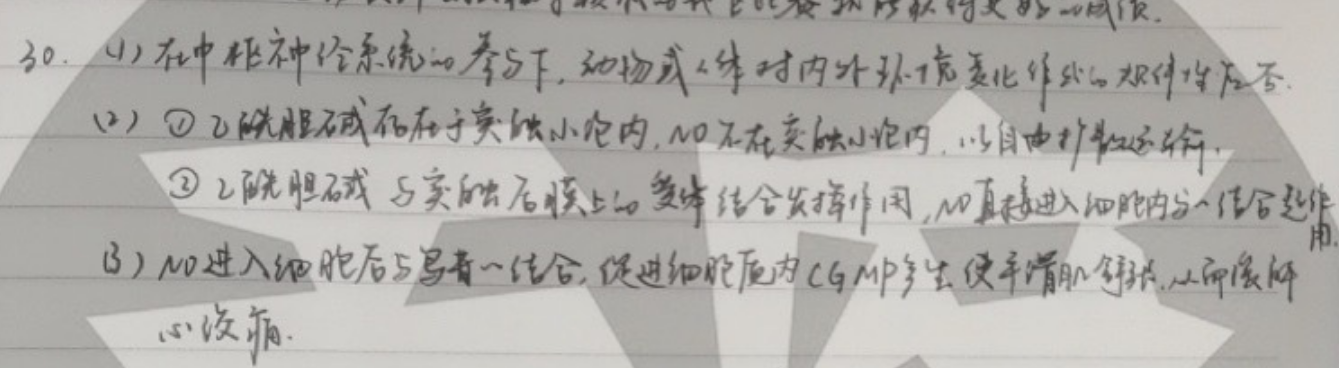 30. (1) 在中枢神经系统的参与下,动物或人体对内外环境变化作出的规律性应答.
(2) ① 乙酰胆碱存在于突触小泡内,NO不在突触小泡内,以自由扩散运输.
② 乙酰胆碱与突触后膜上的受体结合发挥作用,NO直接进入细胞内与~结合起作用.
(3) NO进入细胞后与鸟苷~结合,促进细胞质内CGMP产生使平滑肌舒张,从而缓解
心绞痛.